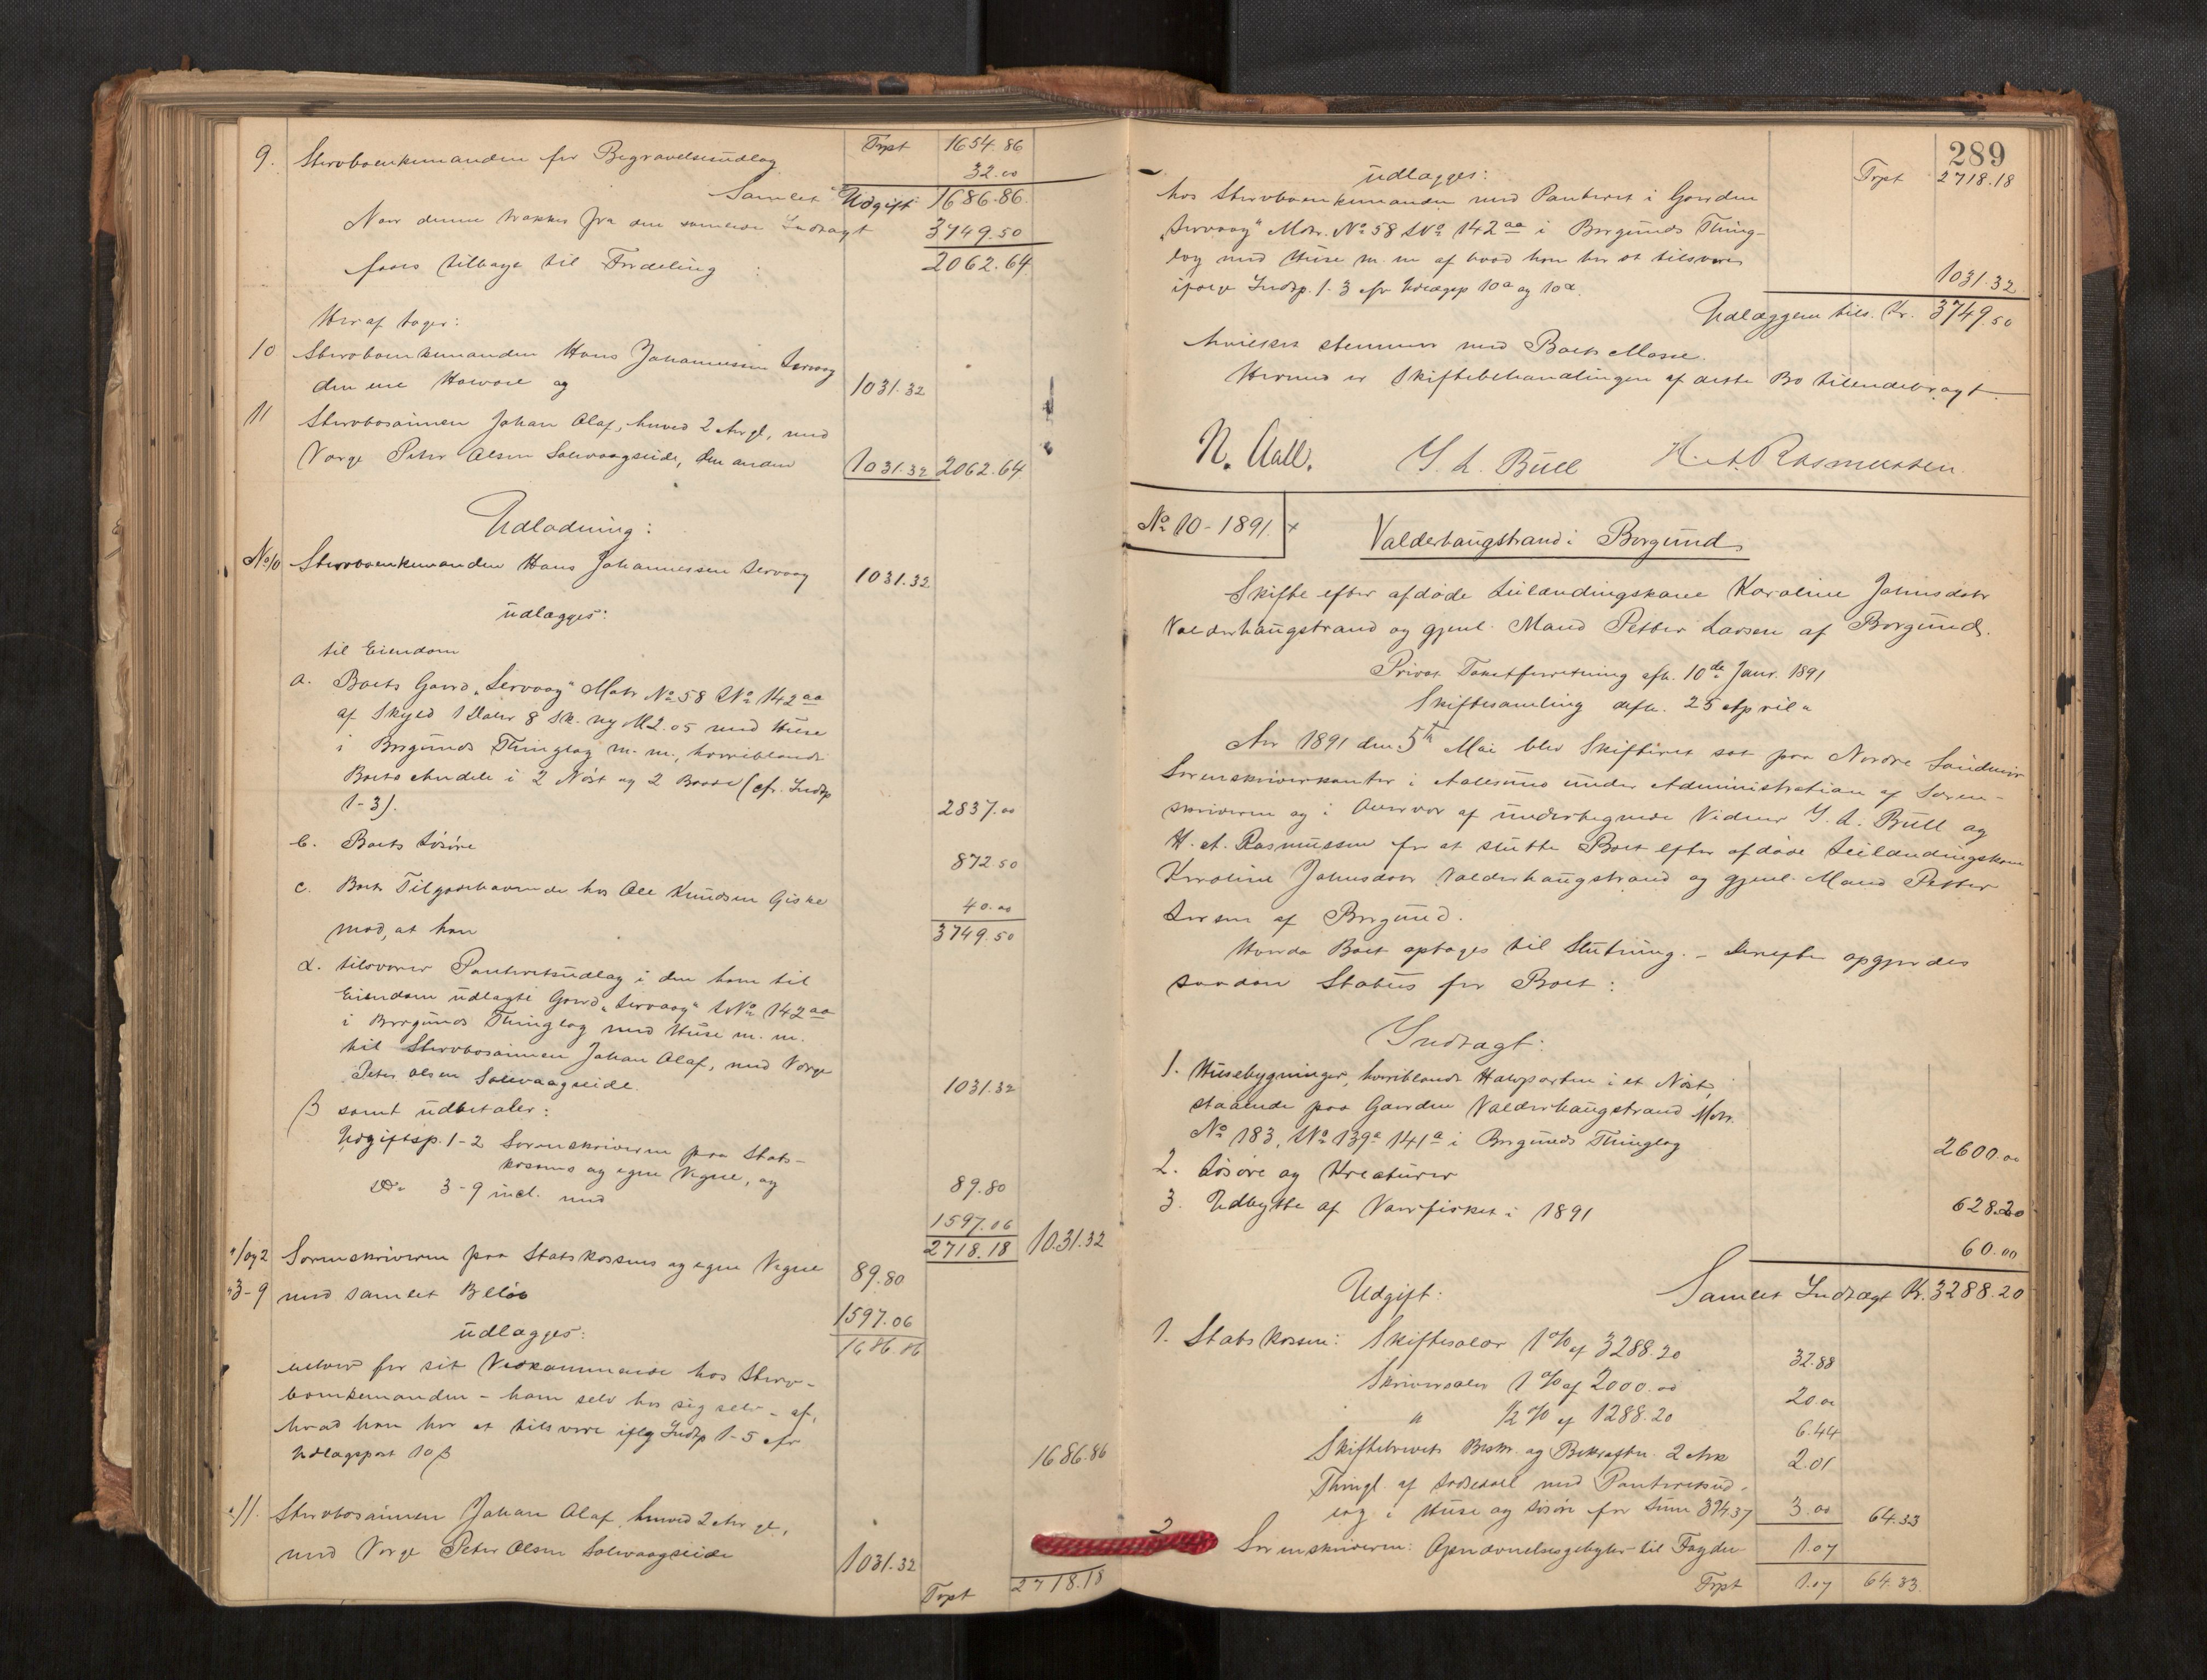 Trpt 1654.86
9. Stervboenkemanden for Begravelsesudlæg 32.00
Samlet Udgift 1686.86
Naar denne trækkes fra den samlede Indtægt 3749.50
faaes tilbage til Fordeling : 2062.64
Heraf tager:
10 Stervboenkemanden Hans Johannessen Servaag
den ene Halvdel og 1031.32
11 Stervbosønnen Johan Olaf, henved 2 Aar gl, med
Værge Peter Olsen Solevaagseide, den anden 1031.32 2062.64
Udlodning:
No 10 Stervboenkemanden Hans Johannessen Servaag 1031.32
udlægges:
til Eiendom
a. Boets Gaard „Servaag" Matr No 58 LNo 142 aa
af Skyld 1 Daler 8 Sk. ny M 2.05 med Huse
i Borgunds Thinglag m. m., hvoriblandt
Boets Andele i 2 Nøst og 2 Baade (cfr. Indtp
1-3). 2837.00
b. Boets Løsøre 872.50
c. Boets Tilgodehavende hos Ole Knudsen Giske 40.00
mod, at han 3749.50
α. tilsvarer Panteretsudlæg i den ham til
Eiendom udlagte Gaard „Servaag" LNo 142 aa
i Borgunds Thinglag med Huse m. m.
til Stervbosønnen Johan Olaf, med Værge
Peter Olsen Solevaagseide. 1031.32
β samt udbetaler:
Udgiftsp. 1-2 Sorenskriveren paa Stats-
kassens og egne Vegne, og 89.80
Do 3-9 incl. med 1597.06
2718.18 1031.32
" 1 og 2 Sorenskriveren paa Statskassens og egne Vegne 89.80
" 3-9 med samlet Beløb 1597.06
udlægges: 1686.86
enhver for sit Vedkommende hos Sterv-
boenkemanden - ham selv hos sig selv - af,
hvad han har at tilsvare iflg Indtp 1-5 cfr
Udlægspost 10 β 1686.86
" 11. Stervbosønnen Johan Olaf, henved 2 Aar gl,
med Værge Peter Olsen Solevaagseide 1031.32
Trpt 2718.18
289
Trpt 2718.18
udlægges:
hos Stervboenkemanden med Panteret i Gaarden
„Servaag" Matr. No 58 LNo 142 aa i Borgunds Thing-
lag med Huse m. m. af hvad han har at tilsvare
ifølge Indtp. 1-3 cfr Udlægsp 10a og 10α. 1031.32
Udlæggene tils. Kr. 3749.50
hvilket stemmer med Boets Masse.
Hermed er Skiftebehandlingen af dette Bo tilendebragt.
N. Aall. S. A. Bull H. A. Rasmussen
No 10 - 1891. x
Valderhaugstrand i Borgund
Skifte efter afdøde Leilændingskone Karoline Johnsdatr
Valderhaugstrand og gjenl. Mand Petter Larsen af Borgund.
Privat Taxtforretning afh. 10de Janr. 1891
Skiftesamling afh. 25 April "
Aar 1891 den 5te Mai blev Skifteret sat paa Nordre Søndmør
Sorenskriverkontor i Aalesund under Administration af Soren-
skriveren og i Overvær af undertegnede Vidner S. A. Bull og
H. A. Rasmussen for at slutte Boet efter afdøde Leilændingskone
Karoline Johnsdatr Valderhaugstrand og gjenl. Mand Petter
Larsen af Borgund.
Hvorda Boet optages til Slutning. - Derefter opgjordes
saadan Status for Boet:
Indtægt:
1. Husebygninger, hvoriblandt Halvparten i et Nøst,
staaende paa Gaarden Valderhaugstrand Matr.
No 183, LNo 139a 141a i Borgunds Thinglag 2600.00
2. Løsøre og Kreaturer 628.20
3. Udbytte af Vaarfisket i 1891 60.00
Samlet Indtægt Kr. 3288.20
Udgift:
1. Statskassen: Skiftesalær 1 % af 3288.20 32.88
Skriversalær 1 % af 2000.00 20.00
" ½ % af 1288.20 6.44
Skiftebrevets Beskr. og Bekræftn. 2 Ark 2.01
Thingl. af Do med Panteretsud-
læg i Huse og Løsøre for Sum 394.37 3.00 64.33
2 Sorenskriveren: Opnævnelsesgebyhr til Fogden 1.07
Trpt 1.07 64.33